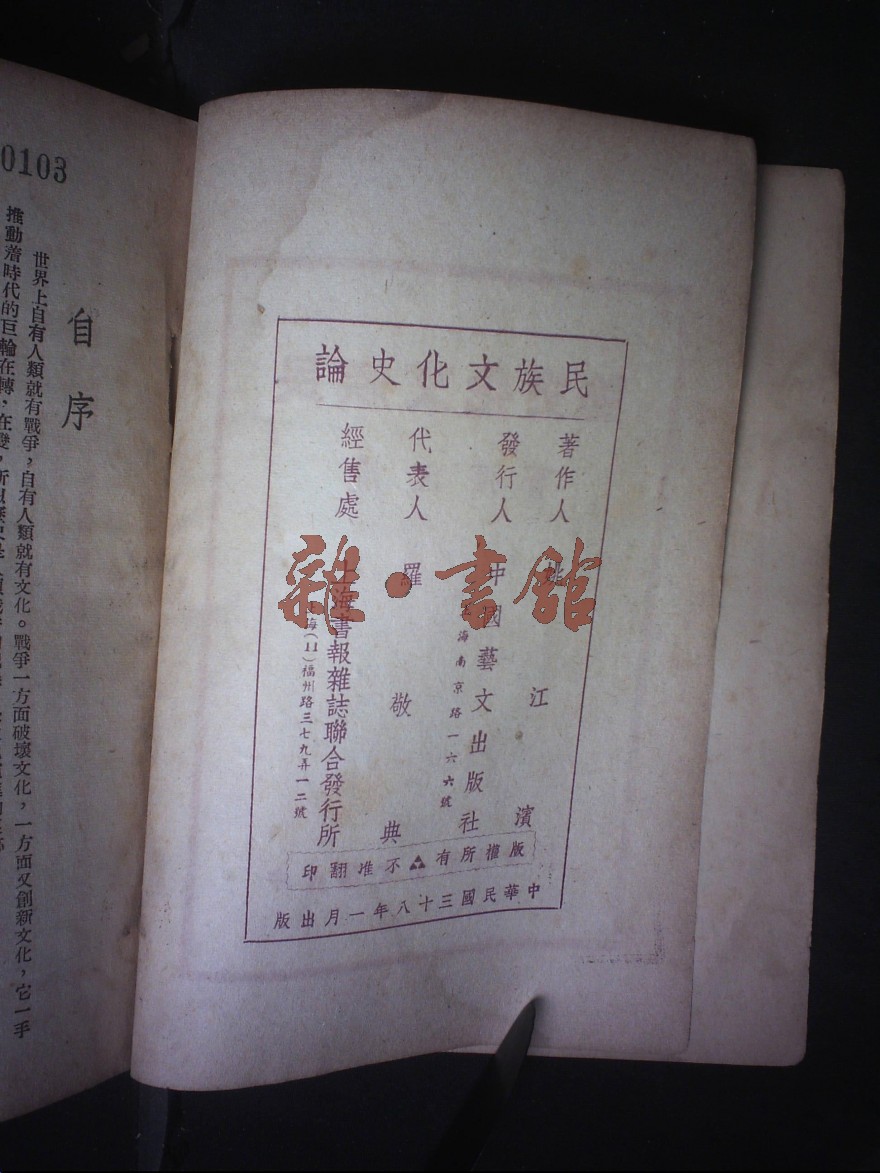 民族文化史論
著作人 姚江濱
發行人 中國藝文出版社
上海南京路一六六號
代表人 羅敬典
經售處 上海書報雜誌聯合發行所
上海(11)福州路三七九弄一二號
版權所有 不准翻印
中華民國三十八年一月出版
雜·書館
0103
自序
世界上自有人類就有戰爭,自有人類就有文化。戰爭一方面破壞文化,一方面又創新文化,它一手
推動着時代的巨輪在轉,在變,所以歷史是